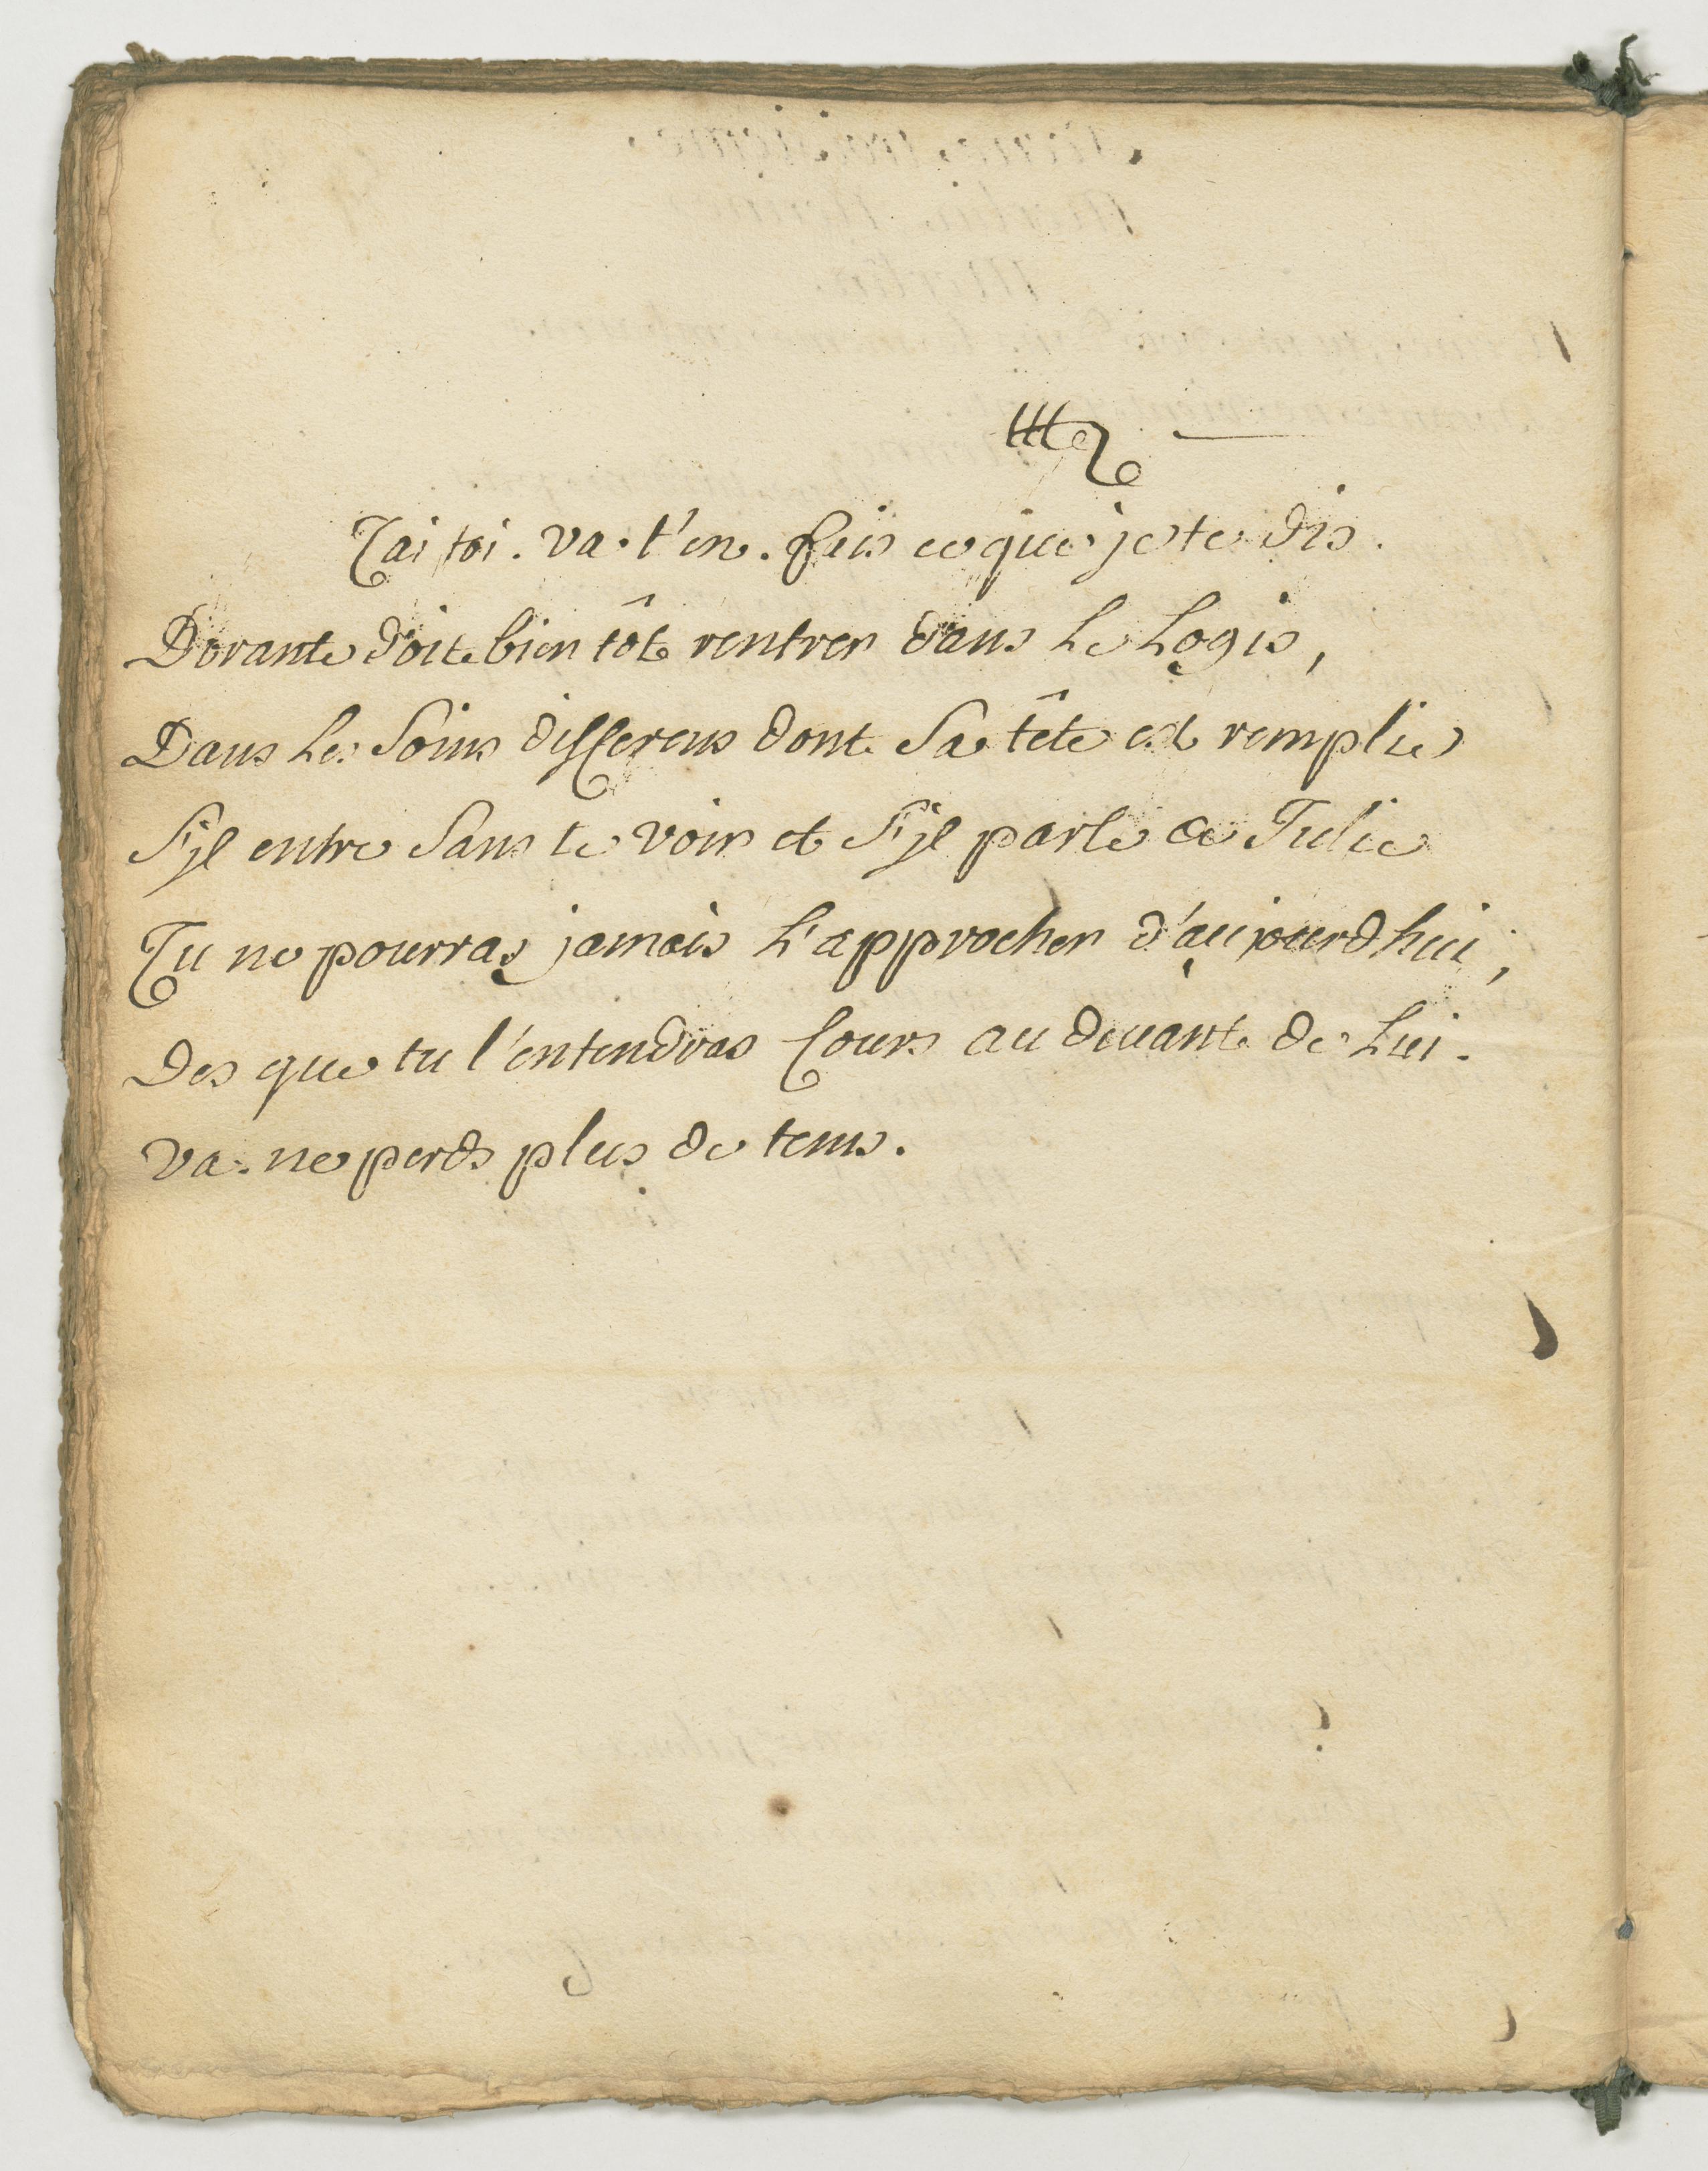 Tai toi. va. t'en. fais ce que je te dis.
Dorante doit bien tôt rentrer dans Le Logis,
Dans Les Soins differens dont Sa tête est remplie
S'jl entre Sans te voir et S'jl parle a Julie
Tu ne pourras jamais L'approcher d'aujourdhui;
Des que tu l'entendras Cours au devant de Lui.
va. ne perds plus de tems.